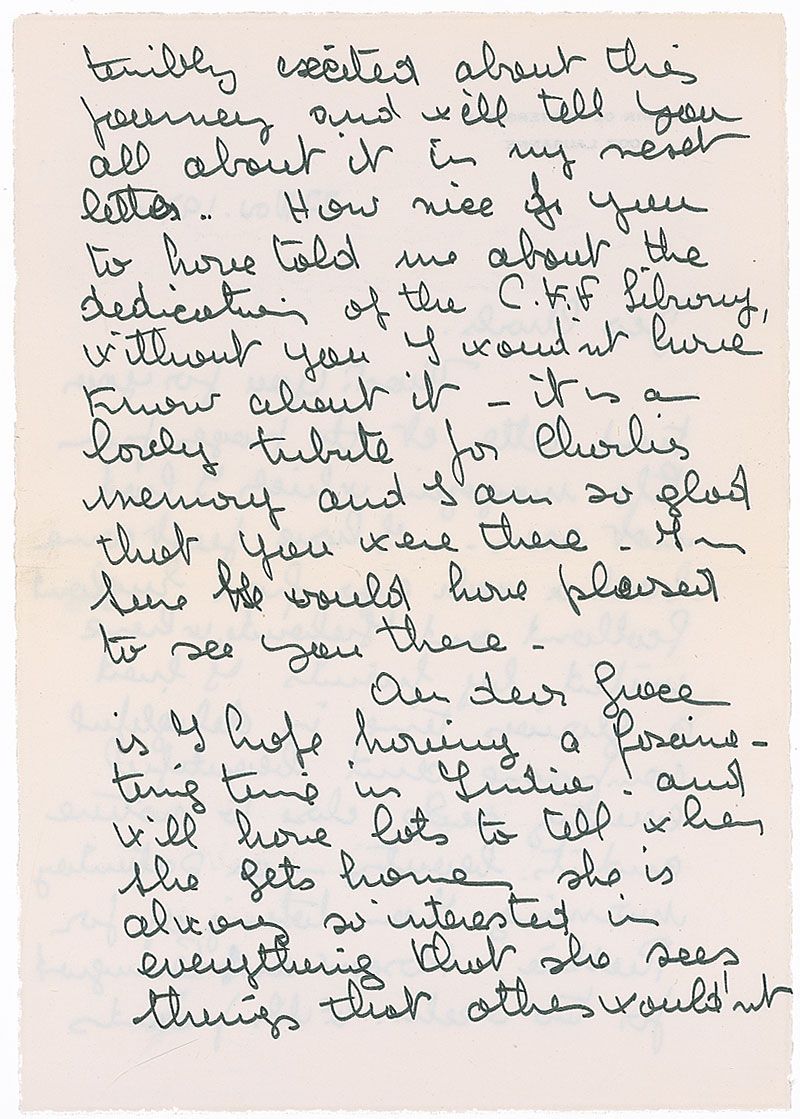 terribly excited about this
journey and will tell you
all about it in my next
letter.. How nice of you
to have told me about the
dedication of the C.F.F Library,
without you I wouldn't have
know about it - it is a
lovely tribute for Charlie's
memory and I am so glad
that you were there - I'm
sure he would have pleased
to see you there -
Our dear Grace
is I hope having a fascina-
ting time in India - and
will have lots to tell when
she gets home, she is
always so interested in
everything that she sees,
things that others wouldn't